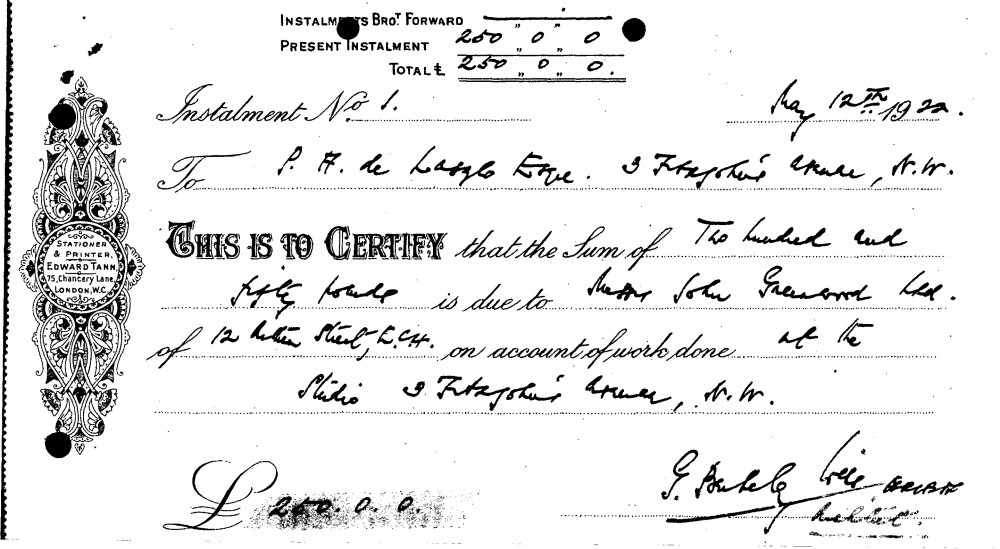 INSTALMENTS BROT. FORWARD " "
PRESENT INSTALMENT 250 " 0 " 0
TOTAL £ 250 " 0 " 0.
Instalment No. 1. May 12th 1922.
To P. A. de Laszlo Esqre. 3 Fitzjohn's Avenue, N.W.
THIS IS TO CERTIFY that the Sum of Two hundred and
fifty pounds is due to Messrs John Greenwood Ltd.
of 12 Street, E.C.4. on account of work done at the
Studio 3 Fitzjohn's Avenue, N.W.
£ 250. 0. 0.
G.
Architect.
STATIONER
& PRINTER,
EDWARD TANN,
75, Chancery Lane,
LONDON, W.C.